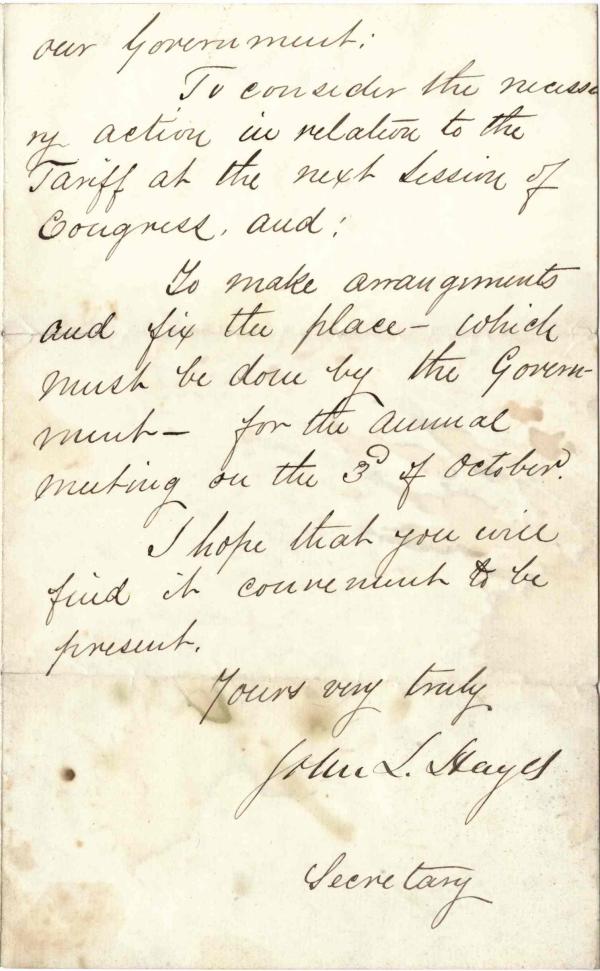 our Government;
To consider the necessa
ry action in relation to the
Tariff at the next Session of
Congress, and;
To make arrangements
and fix the place – which
must be done by the Govern-
ment – for the annual
meeting on the 3d of October.
I hope that you will
find it convenient to be
present.
Yours very truly
John L. Hayes
Secretary